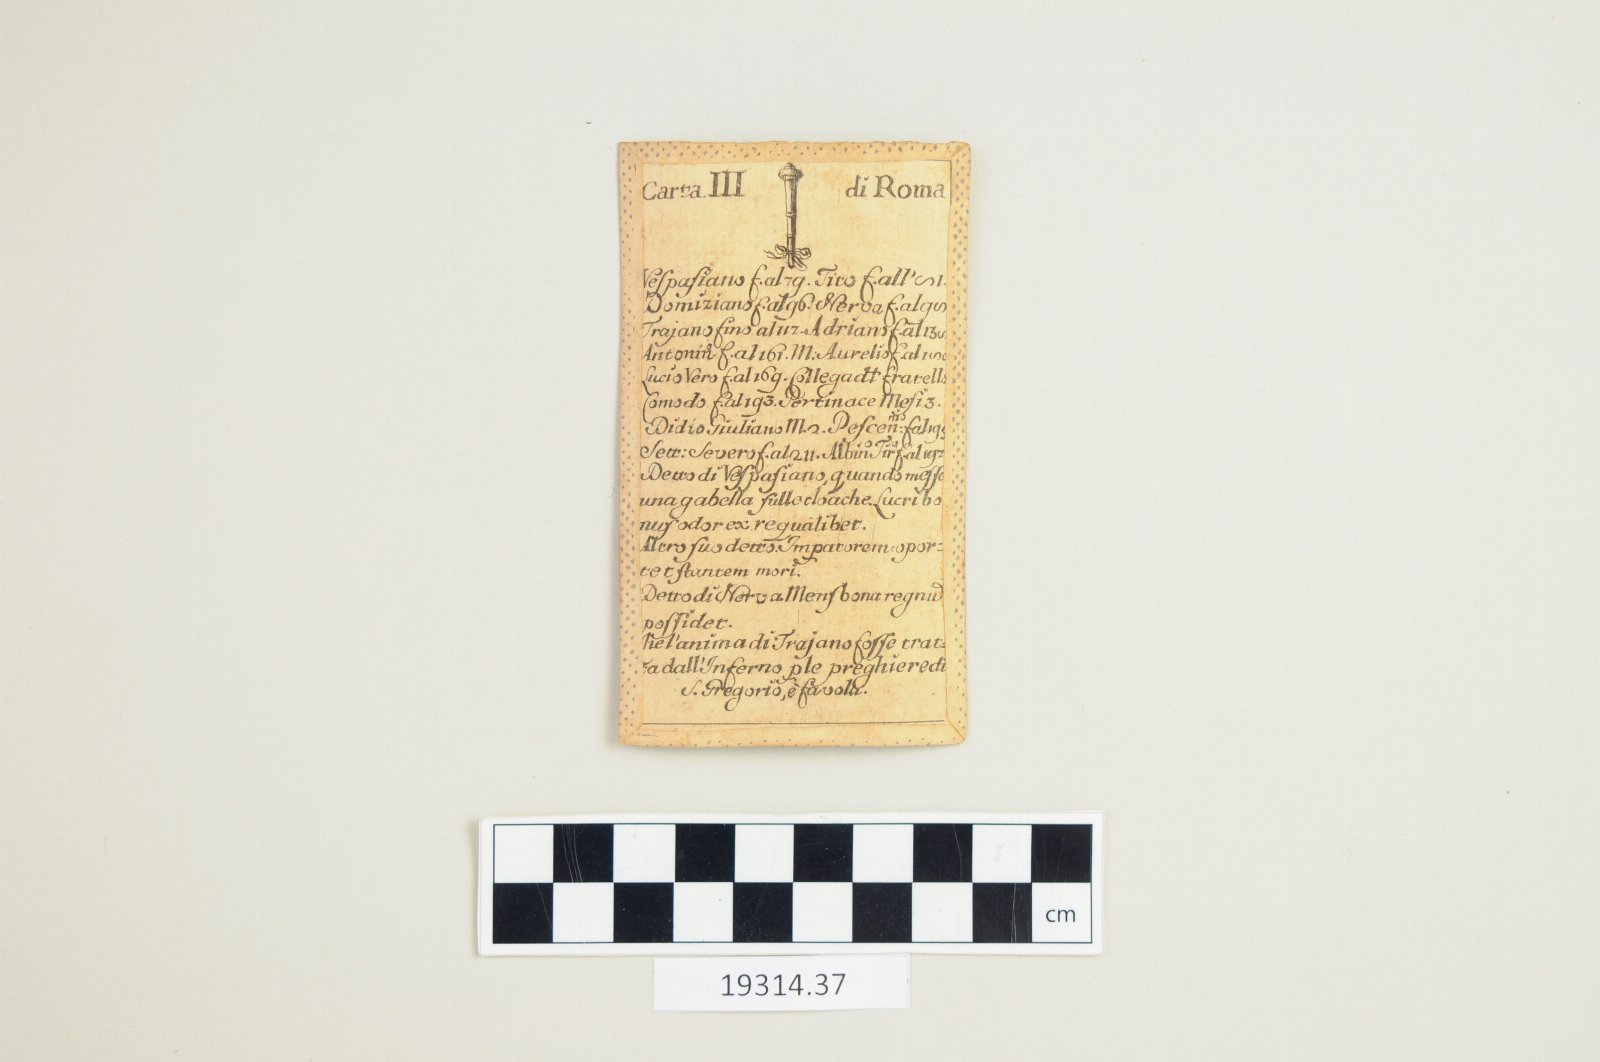 Carta III di Roma
Vespasiano f. al 79. Tito f. all' 81.
Domiziano f. al 96. Nerva f. al 98
Trajano fino al 117. Adriano f. al 138
Antonin f. al 161. M: Aurelio f. al 180
Lucio Vero f. al 169. Collega dtt fratello
Comodo f. al 193. Pertinace Mesi 3.
Didio Giuliano M. 2. Pescen:nio f. al 195
Sett: Severo f. al 211. Albin f. al 197
Detto di Vespasiano, quando messe
una gabella sulle cloache. Lucri bo
nus odor ex re qualibet.
Altro suo detto. Impatorem opor=
tet stantem mori.
Detto di Nerva Mens bona regnū
possidet.
he l'anima di Trajano fosse trat=
ta dall' Inferno p le preghiere di
S. Gregorio, è favola.
cm
19314.37